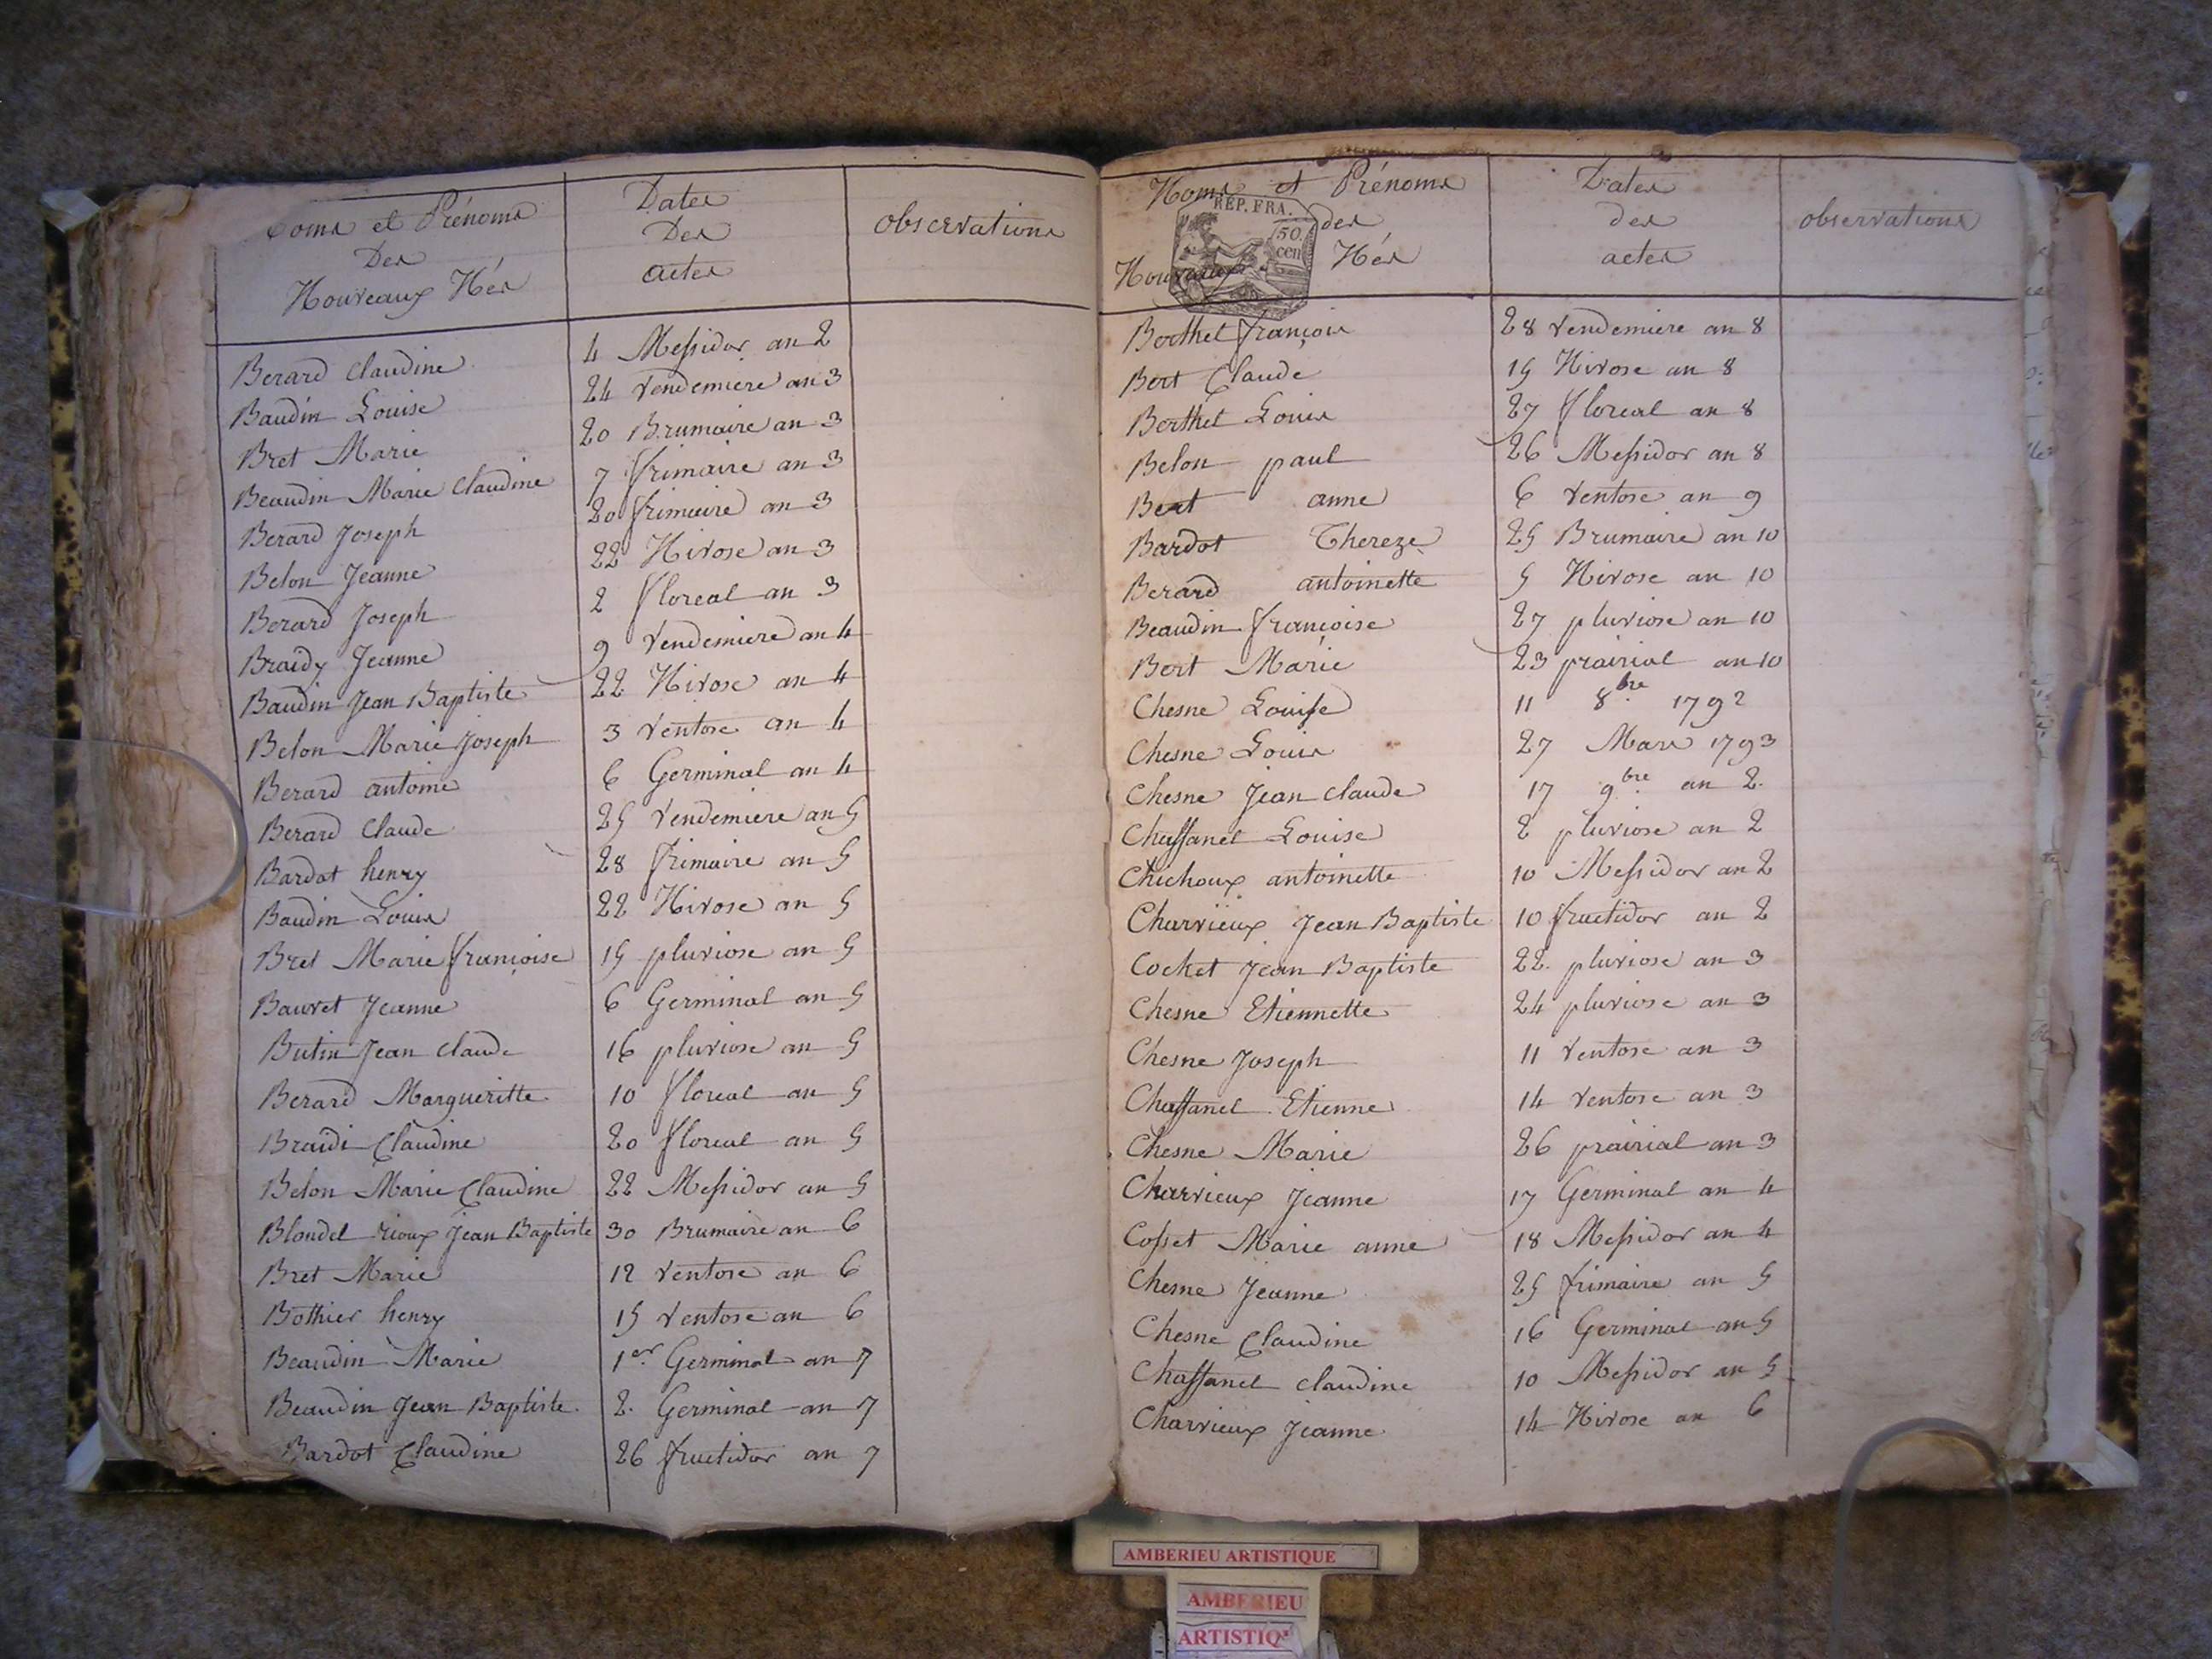 Noms et Prénoms
Des
Nouveaux Nés
Dates
Des
actes
observations
Berard Claudine 4 Messidor an 2
Baudin Louise 24 Vendemiere an 3
Bret Marie 20 Brumaire an 3
Beaudin Marie Claudine 7 frimaire an 3
Berard Joseph 20 frimaire an 3
Belon Jeanne 22 Nivose an 3
Berard Joseph 2 floreal an 3
Braidy Jeanne 9 Vendemiere an 4
Baudin Jean Baptiste 22 Nivose an 4
Belon Marie Joseph 3 Ventose an 4
Berard antoine 6 Germinal an 4
Berard Claude 25 Vendemiere an 5
Bardot henry 28 frimaire an 5
Baudin Louis 22 Nivose an 5
Bret Marie françoise 15 pluviose an 5
Bauvet Jeanne 6 Germinal an 5
Butin Jean Claude 16 pluviose an 5
Berard Margueritte 10 floreal an 5
Braidi Claudine 20 floreal an 5
Belon Marie Claudine 22 Messidor an 5
Blondel rioux Jean Baptiste 30 Brumaire an 6
Bret Marie 12 Ventose an 6
Bothier henry 15 Ventose an 6
Beaudin Marie 1er Germinal an 7
Beaudin Jean Baptiste 2. Germinal an 7
Bardot Claudine 26 fructidor an 7
Noms et Prénoms
des
Nouveaux Nés
RÉP. FRA.
50.
cen
Dates
des
actes
observations
Berthet françois 28 Vendemiere an 8
Bert Claude 15 Nivose an 8
Berthet Louis 27 floreal an 8
Belon paul 26 Messidor an 8
Bert anne 6 Ventose an 9
Bardot Thereze 25 Brumaire an 10
Berard antoinette 5 Nivose an 10
Beaudin françoise 27 pluviose an 10
Bert Marie 23 prairial an 10
Chesne Louise 11 8.bre 1792
Chesne Louis 27 Mars 1793
Chesne Jean Claude 17 9.bre an 2.
Chassanel Louise 2 pluviose an 2
Chichoux antoinette 10 Messidor an 2
Charvieux Jean Baptiste 10 fructidor an 2
Cochet Jean Baptiste 22. pluviose an 3
Chesne Etiennette 24 pluviose an 3
Chesne Joseph 11 Ventose an 3
Chassanel Etienne 14 Ventose an 3
Chesne Marie 26 prairial an 3
Charvieux Jeanne 17 Germinal an 4
Cosset Marie anne 18 Messidor an 4
Chesne Jeanne 25 frimaire an 5
Chesne Claudine 16 Germinal an 5
Chassanel Claudine 10 Messidor an 5
Charvieux Jeanne 14 Nivose an 6
AMBERIEU ARTISTIQUE
AMBERIEU
ARTISTIQ